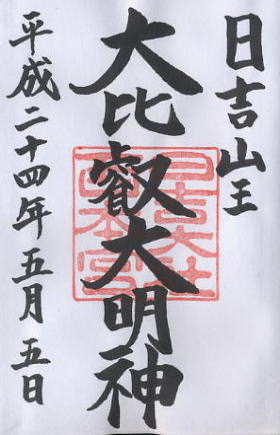 日吉山王
大比叡大明神
平成二十四年五月五日
日吉大社
西本宮